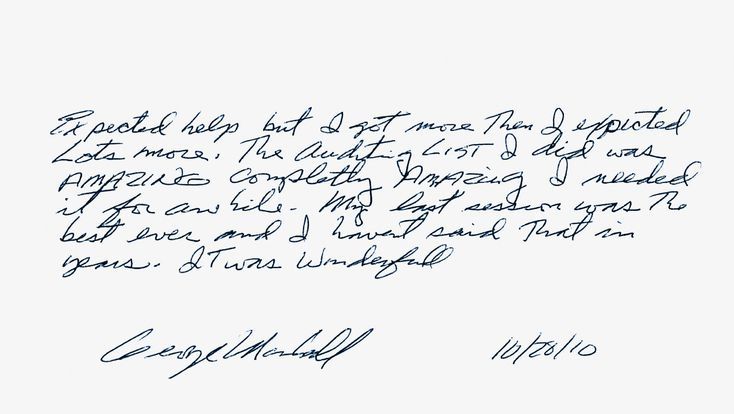 Expected help but I got more Then I expicted
Lots more. The Auditing LIST I did was
AMAZING Completly AMAzing I needed
it for awhile. My last session was The
best ever and I havent said That in
years. IT was Wonderfull
George Marshall 10/28/10